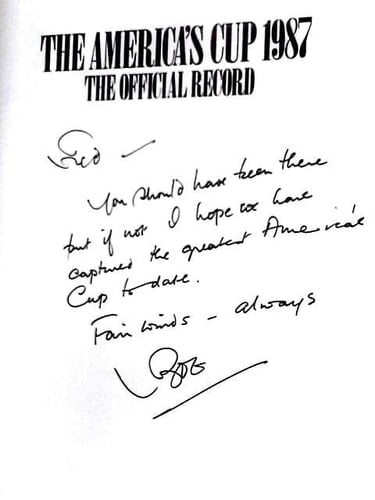 THE AMERICA'S CUP 1987
THE OFFICIAL RECORD
You should have been there
but if not I hope we have
captured the greatest America's
Cup to date.
Fair winds – always